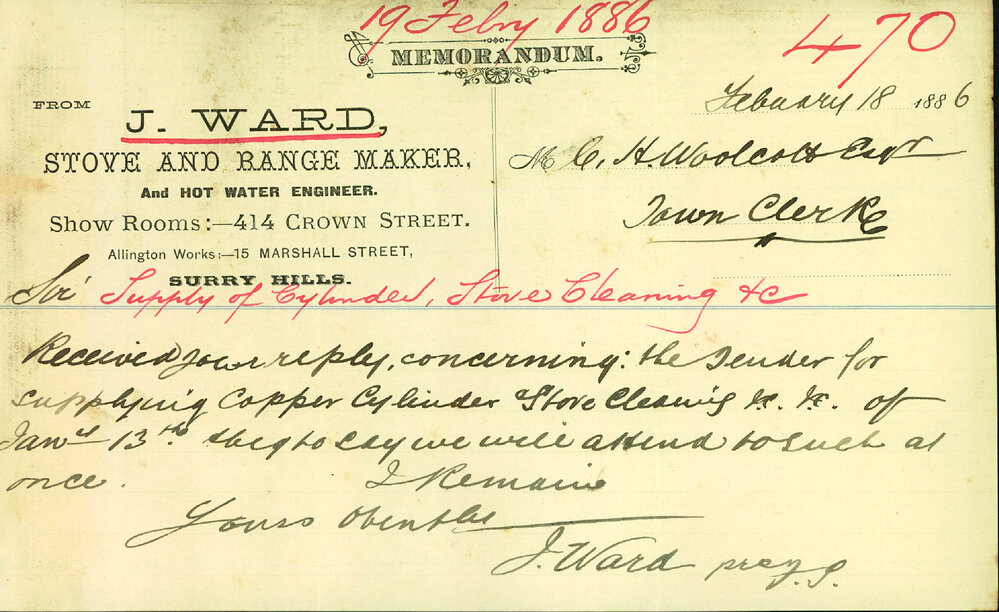 19 Febry 1886
470
MEMORANDUM.
FROM
J. WARD,
STOVE AND RANGE MAKER,
And HOT WATER ENGINEER.
Show Rooms:—414 CROWN STREET.
Allington Works:—15 MARSHALL STREET,
SURRY HILLS.
Febuary 18 1886
M C. H. Woolcott Esqr
Town Clerk
Sir
Supply of Cylinder, Stove Cleaning &c
Received your reply, concerning: the Tender for
supplying Copper Cylinder Stove Cleaning &c. &c. of
Jany 13th I beg to say we will attend to such at
once. I Remain
Yours
J. Ward